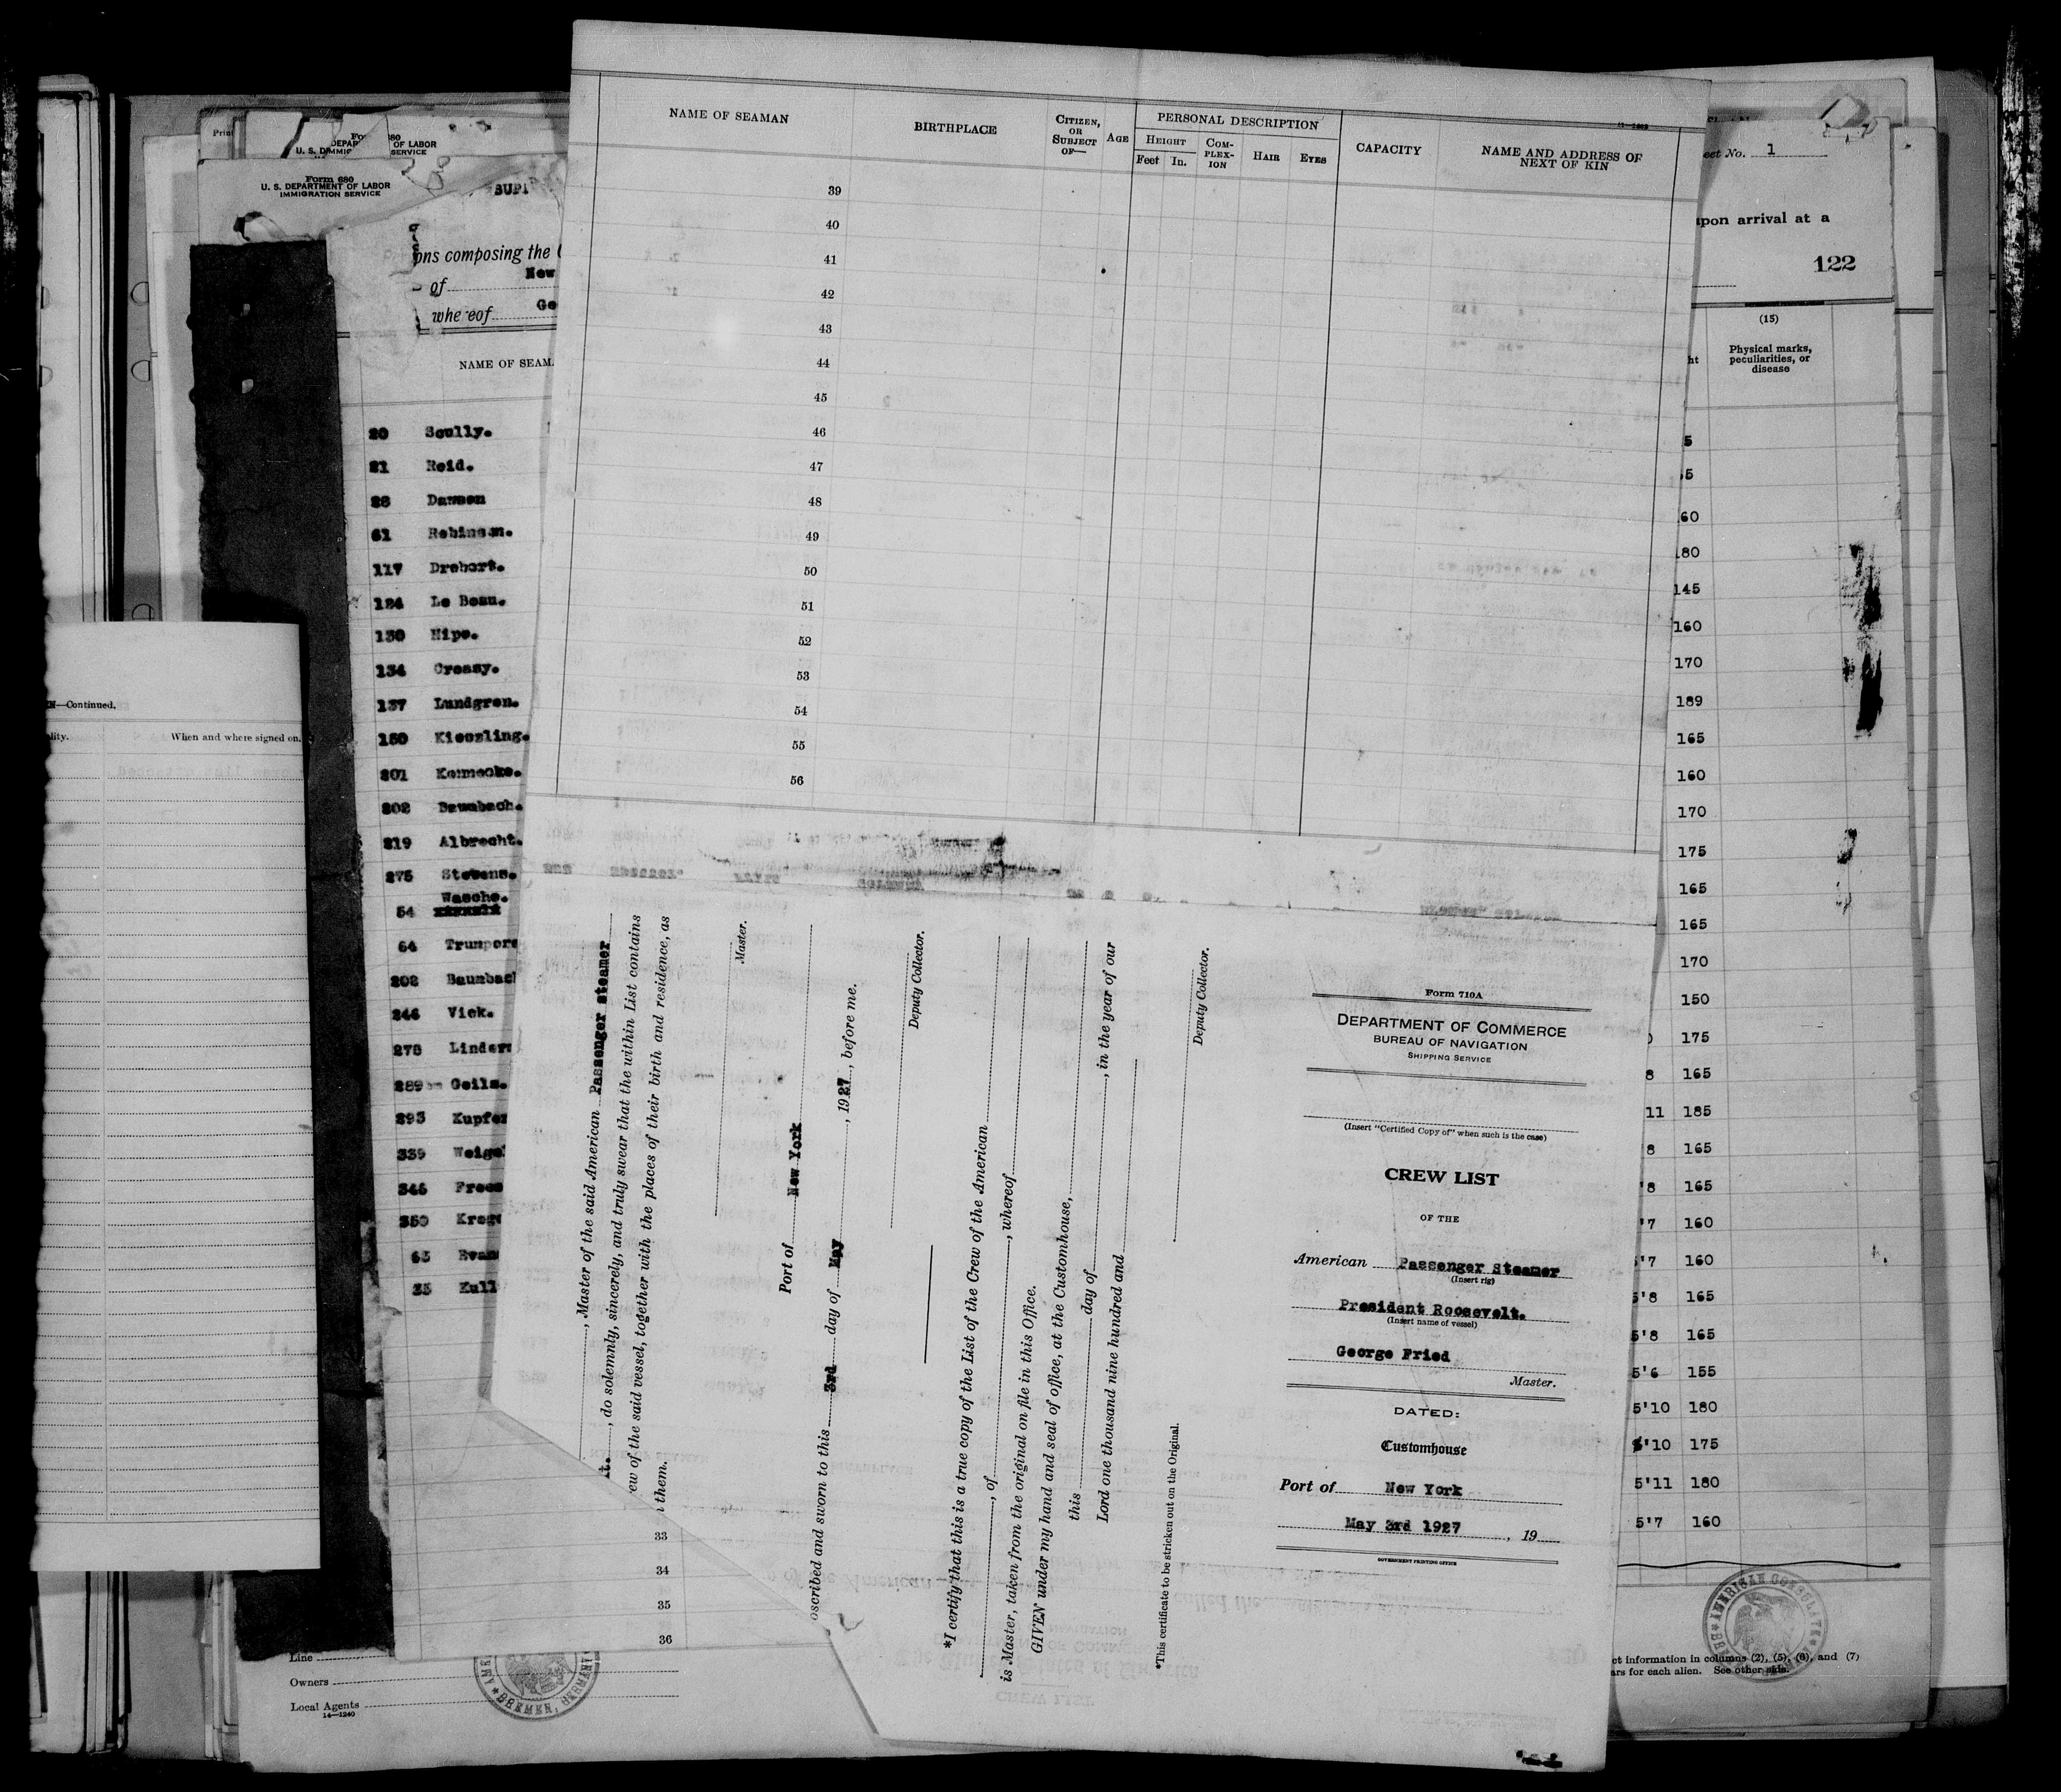 Form 680
U. S. DEPARTMENT OF LABOR
IMMIGRATION SERVICE
ons composing the
of New
whereof Ge
NAME OF SEAM
20 Scully.
21 Reid.
28 Dawson
61 Robinson.
117 Drebert.
124 Le Beau.
130 Hips.
134 Creasy.
137 Lundgren.
150 Kieszling.
201
202 Baumbach.
219 Albrecht.
275 Stevens.
Wasche.
54
64 Trumpore
202 Baumbach
246 Vick.
278 Linder
289 Geils.
293 Kupfer
339 Weige
346 Frees
350 Kreg
63 Evan
35 Kull
33
34
35
36
Line
Owners
Local Agents
14—1240
N—Continued.
lity.
When and where signed on.
NAME OF SEAMAN
BIRTHPLACE
CITIZEN, OR SUBJECT OF—
AGE
PERSONAL DESCRIPTION
HEIGHT
Feet In.
COMPLEXION
HAIR
EYES
CAPACITY
NAME AND ADDRESS OF NEXT OF KIN
39
40
41
42
43
44
45
46
47
48
49
50
51
52
53
54
55
56
, Master of the said American Passenger steamer
lt. , do solemnly, sincerely, and truly swear that the within List contains
ew of the said vessel, together with the places of their birth and residence, as
them.
Master.
Port of New York
oscribed and sworn to this 3rd day of May , 1927 , before me.
Deputy Collector.
*I certify that this is a true copy of the List of the Crew of the American
, of , whereof
is Master, taken from the original on file in this Office.
GIVEN under my hand and seal of office, at the Customhouse,
this day of , in the year of our
Lord one thousand nine hundred and
Deputy Collector.
*This certificate to be stricken out on the Original.
Form 710A
DEPARTMENT OF COMMERCE
BUREAU OF NAVIGATION
SHIPPING SERVICE
(Insert "Certified Copy of" when such is the case)
CREW LIST
OF THE
American Passenger Steamer
(Insert rig)
President Roosevelt.
(Insert name of vessel)
George Fried
Master.
DATED:
Customhouse
Port of New York
May 3rd 1927 , 19
GOVERNMENT PRINTING OFFICE
eet No. 1
upon arrival at a
122
(15)
Physical marks, peculiarities, or disease
ht
5
55
60
180
145
160
170
189
165
160
170
175
165
165
170
150
175
8 165
11 185
8 165
'8 165
'7 160
5'7 160
5'8 165
5'8 165
5'6 155
5'10 180
5'10 175
5'11 180
5'7 160
AMERICAN CONSULATE
ct information in columns (2), (5), (6), and (7)
ars for each alien. See other side.